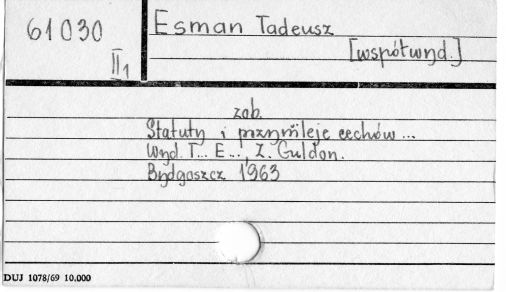 61030
II1
Esman Tadeusz
[współwyd.]
zob.
Statuty i przywileje cechów...
Wyd. T... E..., Z. Guldon.
Bydgoszcz 1963
DUJ 1078/69 10.000